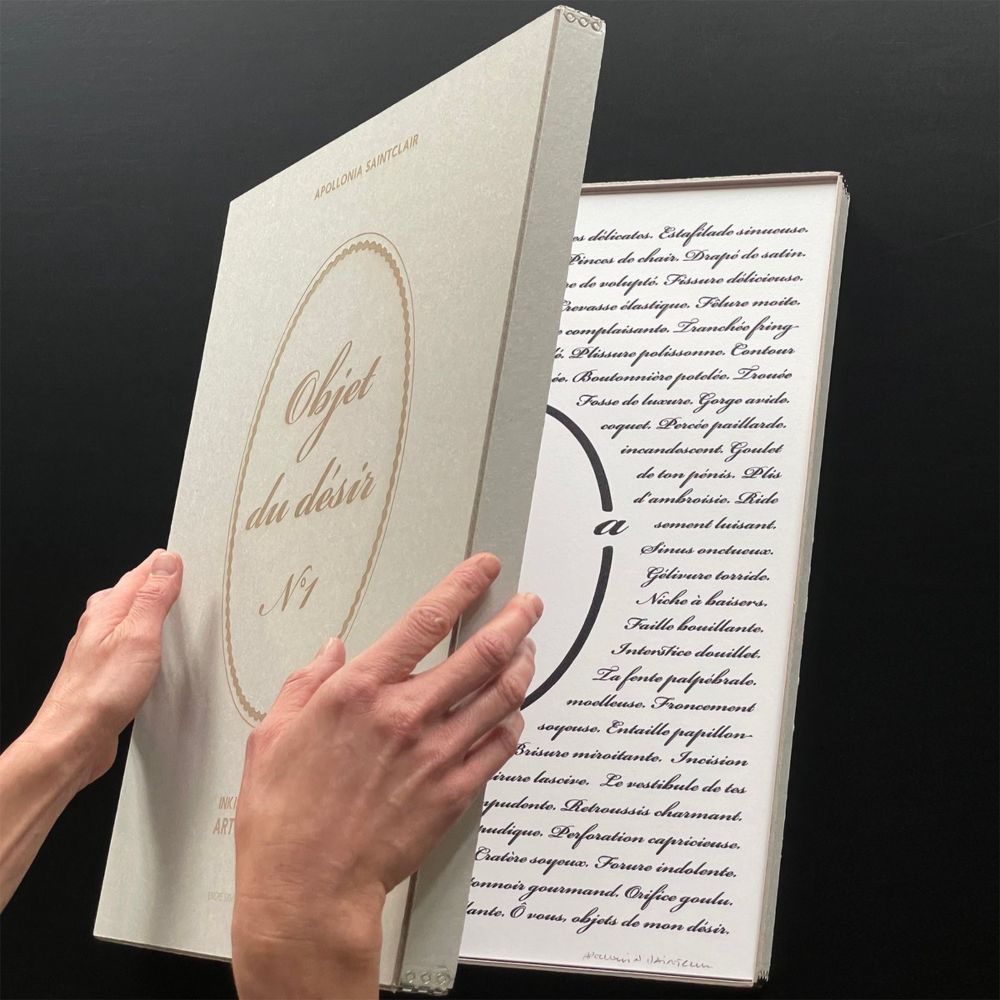 APOLLONIA SAINTCLAIR
Objet
du désir
N°1
INK I
ART
es délicates. Estafilade sinueuse.
Pinces de chair. Drapé de satin.
re de volupté. Fissure délicieuse.
Crevasse élastique. Fêlure moite.
complaisante. Tranchée fring-
é. Plissure polissonne. Contour
ée. Boutonnière potelée. Trouée
Fosse de luxure. Gorge avide.
coquet. Percée paillarde.
incandescent. Goulet
de ton pénis. Plis
d'ambroisie. Ride
a
sement luisant.
Sinus onctueux.
Gélivure torride.
Niche à baisers.
Faille bouillante.
Interstice douillet.
Ta fente palpébrale.
moelleuse. Froncement
soyeuse. Entaille papillon-
Brisure miroitante. Incision
irure lascive. Le vestibule de tes
mpudente. Retroussis charmant.
pudique. Perforation capricieuse.
Cratère soyeux. Forure indolente.
onnoir gourmand. Orifice goulu.
lante. Ô vous, objets de mon désir.
Apollonia Saintclair